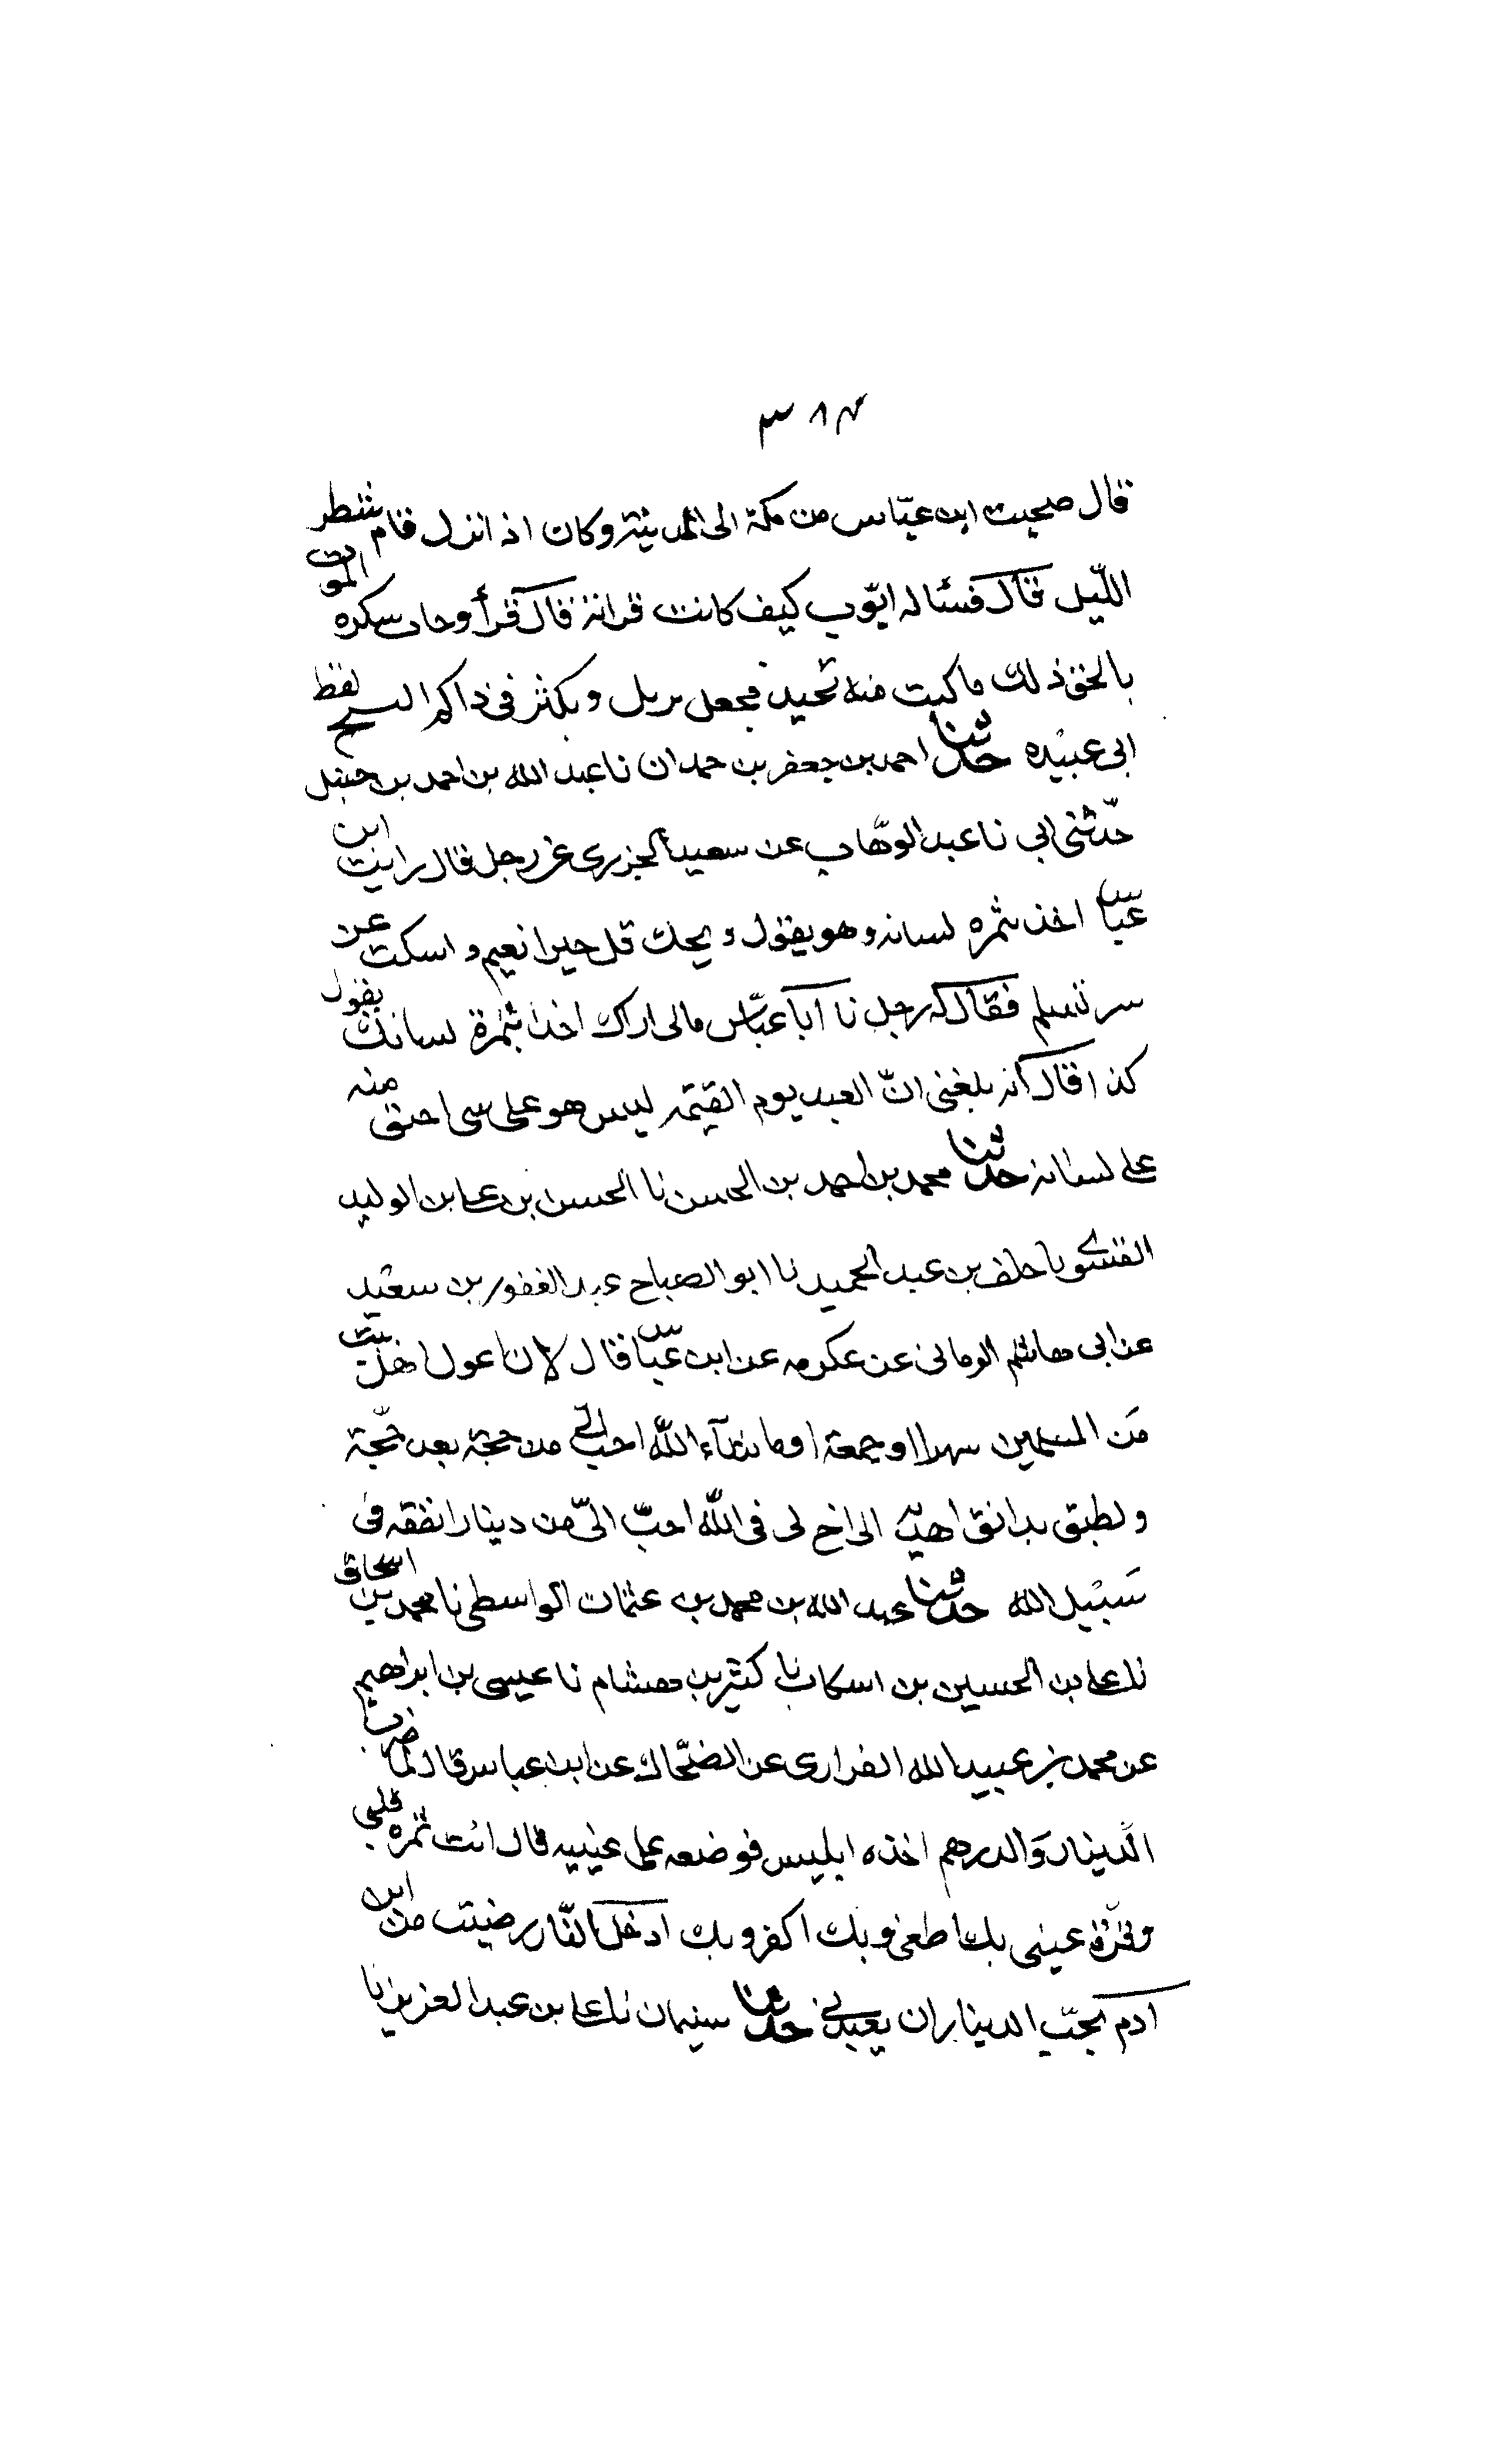 ٣٨٤
قال صحبت ابن عبّاس من مكة الى المدينة وكان اذ انزل قام شطر
اللّيل قال فسئاله ايّوب كيف كانت قرانة قال قرأ وجات سكرة الموت
بالحق ذلك ما كنت منه تحيد فجعل يرتل ويكثر فى ذاكم النسيج لفظ
ابى عبيده حدثنا احمد بن جعفر بن حمدان نا عبد الله بن احمد بن حنبل
حدّثنى ابى نا عبد الوهّاب عن سعيد الجزرى عن رجل قال رايت ابن
عبّاس اخذ بثمره لسانه وهو يقول ويحك قل خيرا نعيم واسكت عن
سر تسلم فقال له رجل نا ابا عبّاس مالى اراك اخذا بثمرة لسانك يقول
كذا قال انه بلغنى انّ العبد يوم القيمة ليس هو على سى احنق منه
على لسانه حدثنا محمد بن احمد بن الحسن نا الحسن بن على بن الوليد
نا خلف بن عبد الحميد نا ابو الصباح عبد الغفور بن سعيد
عن ابى هاشم الرمانى عن عكرمه عن ابن عبّاس قال لان اعول اهل بيت
من المسلمين سهرا او جمعة او ما شآء الله احب الى من حجة بعد حّجة
ولطبق بدانق اهديه الى اخ لى فى الله احبّ الىّ من دينار انفقه فى
سبيل الله حدثنا عبد الله بن محمد بن عثمان الواسطى نا محمد بن اسحاق
نا على بن الحسين بن اسكاب نا كثير بن هشام نا عيسى بن ابراهيم
عن محمد بن عبيد الله الفزارى عن الضحّاك عن ابن عباس قال لما ضرب
الدينار والدرهم اخذه ابليس فوضعه على عينيه قال انت ثمره قلبى
وقرّة عينى بك اطغى وبك اكفر وبك ادخل النّار رضيت من ابن
آدم بحبّ الدينار ان يعبدنى حدثنا سليمان نا على بن عبد العزيز نا